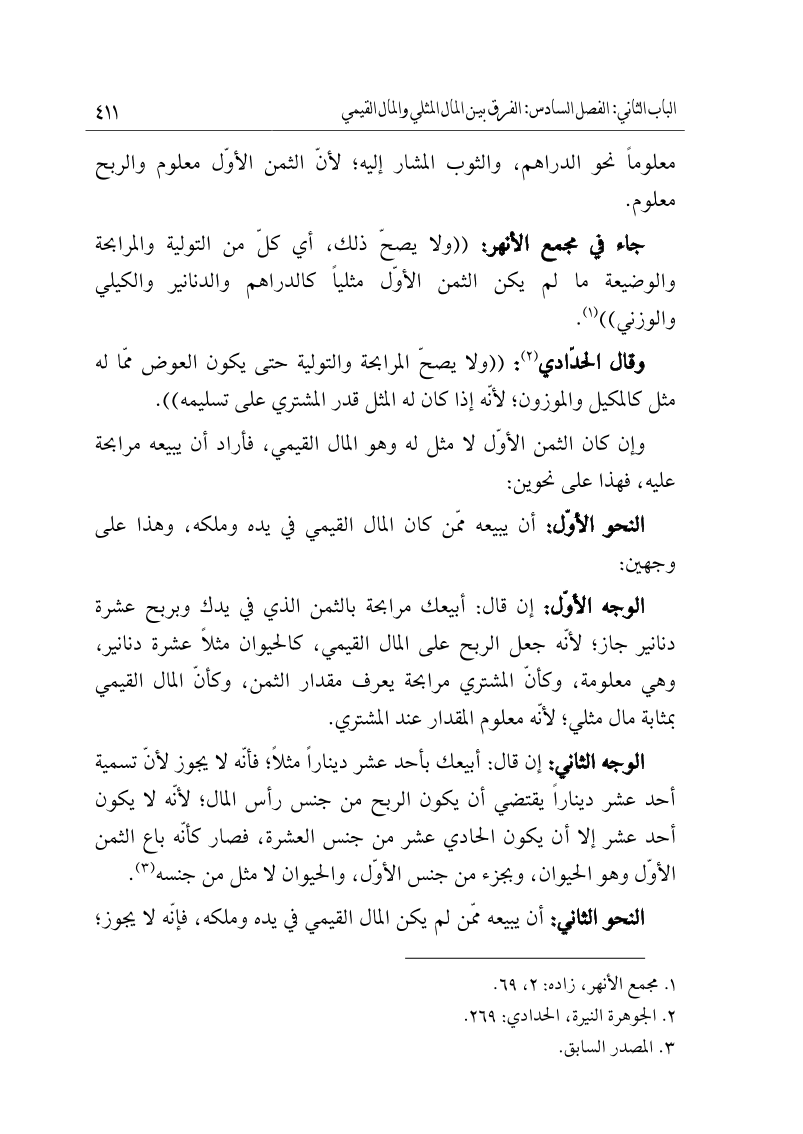 الباب الثاني: الفصل السادس: الفرق بين المال المثلي والمال القيمي ٤١١
معلوماً نحو الدراهم، والثوب المشار إليه؛ لأنّ الثمن الأوّل معلوم والربح
معلوم.
جاء في مجمع الأنهر: ((ولا يصحّ ذلك، أي كلّ من التولية والمرابحة
والوضيعة ما لم يكن الثمن الأوّل مثلياً كالدراهم والدنانير والكيلي
والوزني))(١).
وقال الحدّادي(٢): ((ولا يصحّ المرابحة والتولية حتى يكون العوض ممّا له
مثل كالمكيل والموزون؛ لأنّه إذا كان له المثل قدر المشتري على تسليمه)).
وإن كان الثمن الأوّل لا مثل له وهو المال القيمي، فأراد أن يبيعه مرابحة
عليه، فهذا على نحوين:
النحو الأوّل: أن يبيعه ممّن كان المال القيمي في يده وملكه، وهذا على
وجهين:
الوجه الأوّل: إن قال: أبيعك مرابحة بالثمن الذي في يدك وبربح عشرة
دنانير جاز؛ لأنّه جعل الربح على المال القيمي، كالحيوان مثلاً عشرة دنانير،
وهي معلومة، وكأنّ المشتري مرابحة يعرف مقدار الثمن، وكأنّ المال القيمي
بمثابة مال مثلي؛ لأنّه معلوم المقدار عند المشتري.
الوجه الثاني: إن قال: أبيعك بأحد عشر ديناراً مثلاً؛ فأنّه لا يجوز لأنّ تسمية
أحد عشر ديناراً يقتضي أن يكون الربح من جنس رأس المال؛ لأنّه لا يكون
أحد عشر إلا أن يكون الحادي عشر من جنس العشرة، فصار كأنّه باع الثمن
الأوّل وهو الحيوان، وبجزء من جنس الأوّل، والحيوان لا مثل من جنسه(٣).
النحو الثاني: أن يبيعه ممّن لم يكن المال القيمي في يده وملكه، فإنّه لا يجوز؛
١. مجمع الأنهر، زاده: ٢، ٦٩.
٢. الجوهرة النيرة، الحدادي: ٢٦٩.
٣. المصدر السابق.